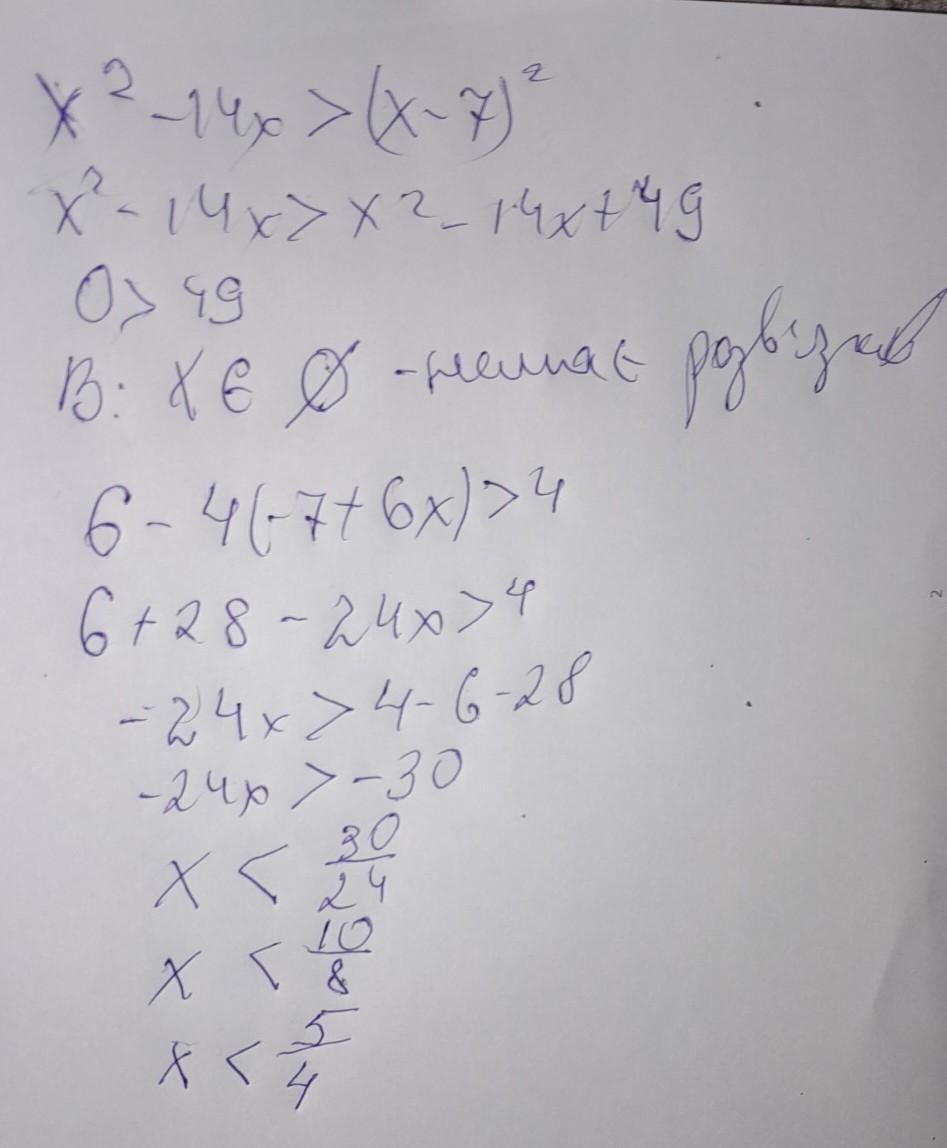 x² - 14x > (x - 7)²
x² - 14x > x² - 14x + 49
0 > 49
В: x ∈ ∅ - немає розв'язків
6 - 4(-7 + 6x) > 4
6 + 28 - 24x > 4
-24x > 4 - 6 - 28
-24x > -30
x < 30/24
x < 10/8
x < 5/4